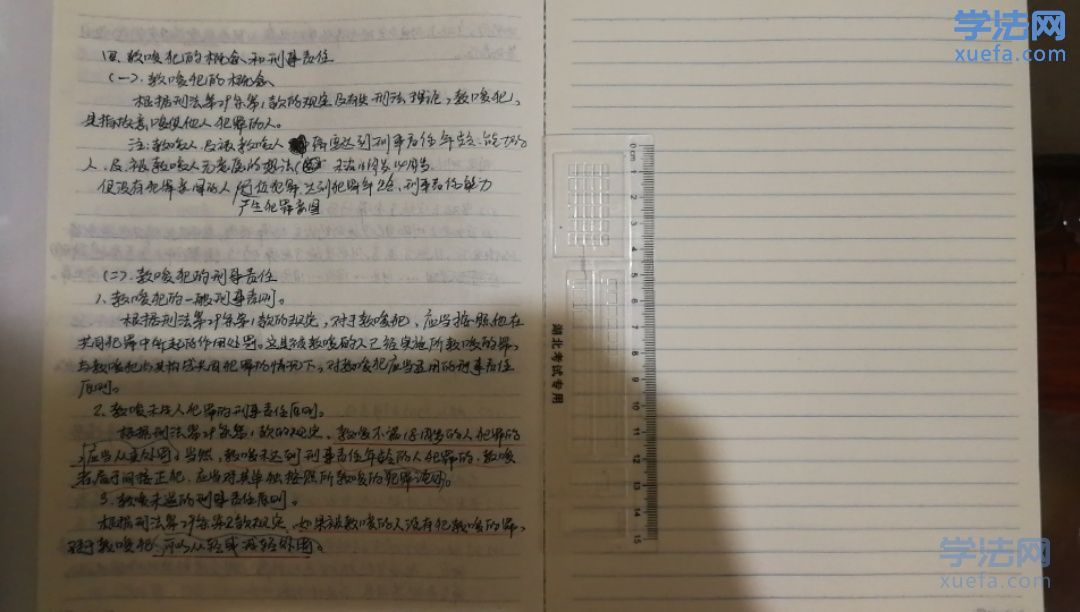 四、教唆犯的概念和刑事责任
(一)、教唆犯的概念
根据刑法第29条第1款的规定及有关刑法理论,教唆犯,
是指故意唆使他人犯罪的人。
注:教唆人及被教唆人 需要达到刑事责任年龄、能力的
人,及被教唆人无意图的想法
但没有犯罪意图的人 达到犯罪年龄、刑事责任能力
产生犯罪意图
(二)、教唆犯的刑事责任
1、教唆犯的一般刑事责则。
根据刑法第29条第1款的规定,对于教唆犯,应当按照他在
共同犯罪中所起的作用处罚。这是被教唆的人已经实施所教唆的罪,
与教唆犯构成共同犯罪的情况下,对教唆犯应当适用的刑事责任
原则。
2、教唆未成人犯罪的刑事责任原则。
根据刑法第29条第1款的规定,教唆不满18周岁的人犯罪的
,应当从重处罚;当然,教唆未达到刑事责任年龄的人犯罪的,教唆
者属于间接正犯,应当对其单独按照所教唆的犯罪论处。
3、教唆未遂的刑事责任原则。
根据刑法第29条第2款规定,如果被教唆的人没有犯教唆的罪,
对于教唆犯,可以从轻或减轻处罚。
学法网
xuefa.com
0 cm
1
2
3
4
5
6
7
8
9
10
11
12
13
14
15
湖北考试专用
学法网
xuefa.com